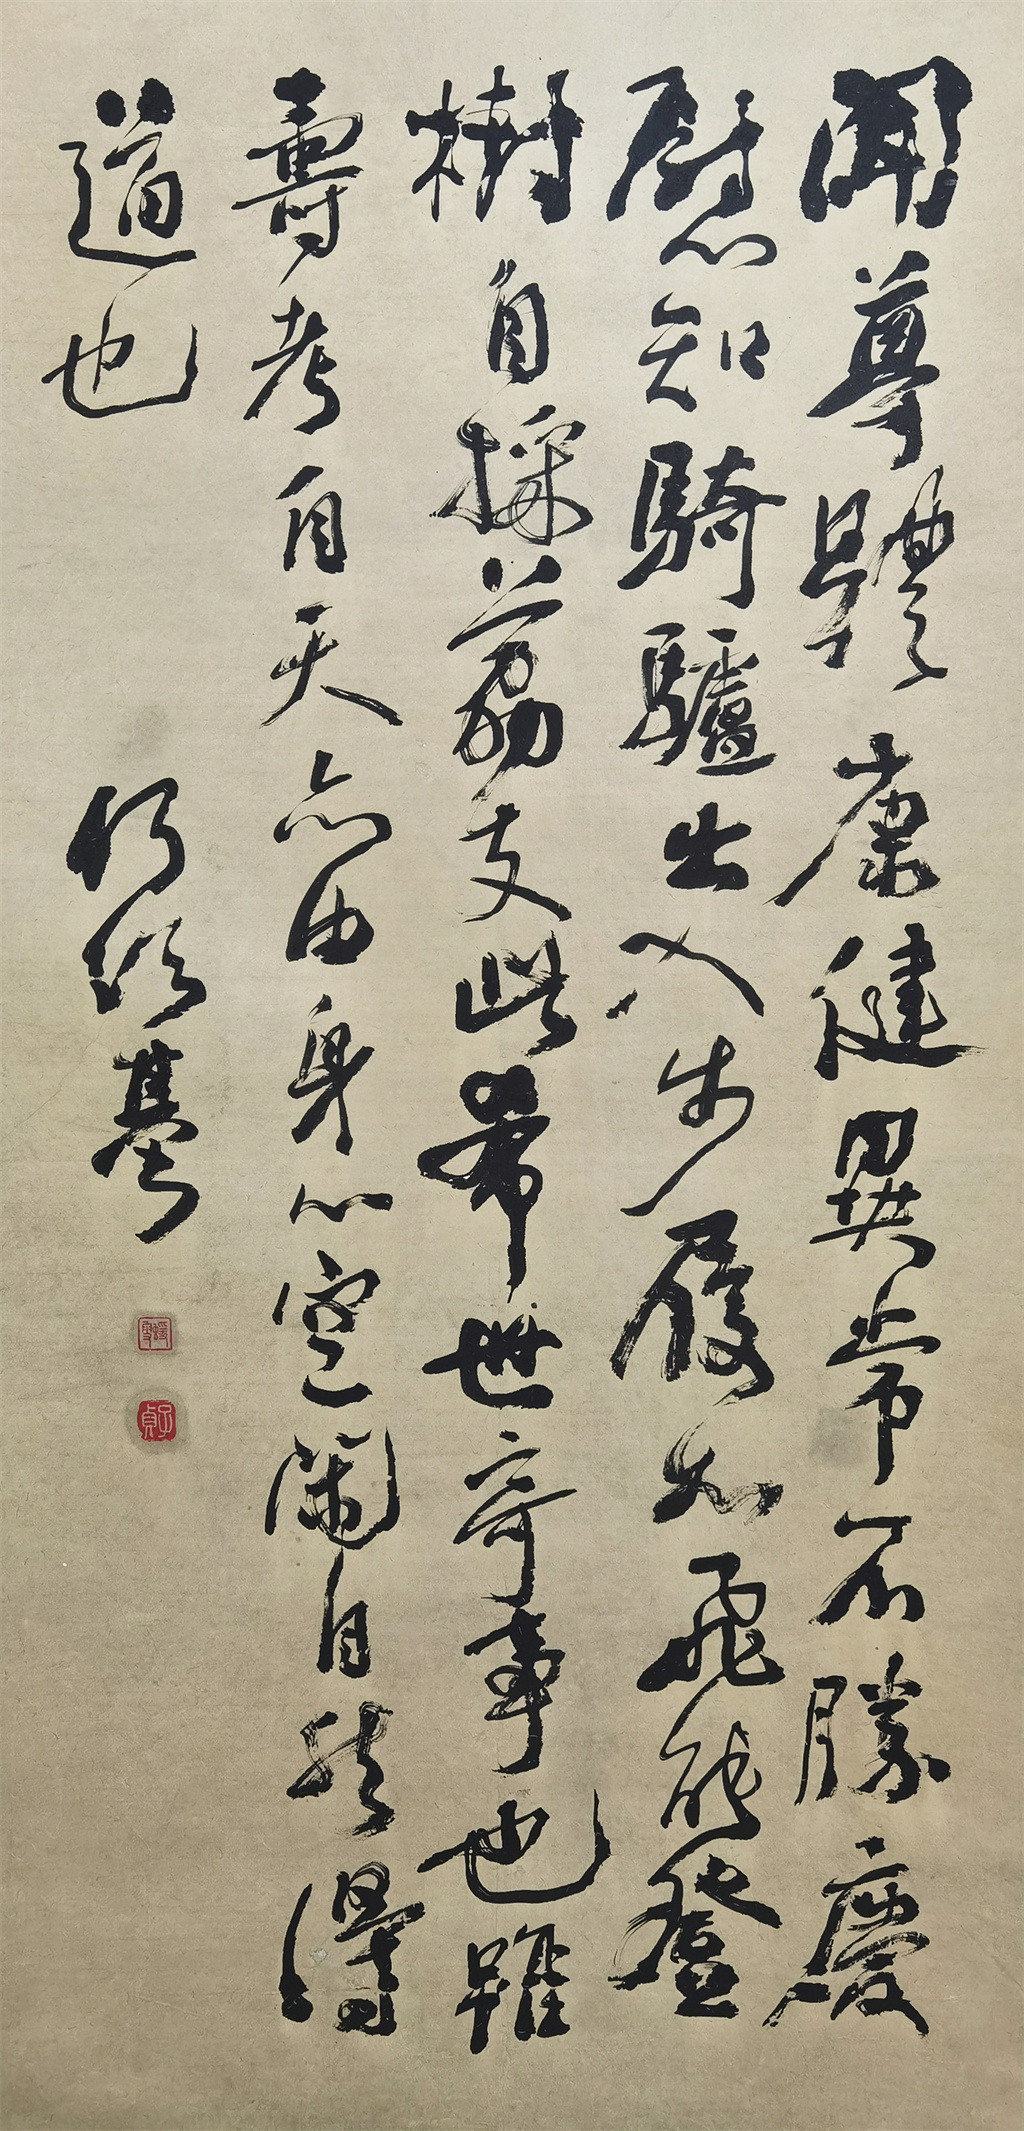 聞尊體康健異常不勝慶
慰知騎驢出入步履如飛能登
樹自採荔支此希世奇事也雖
壽考自天亦由身心空閒自然得
道也
何紹基